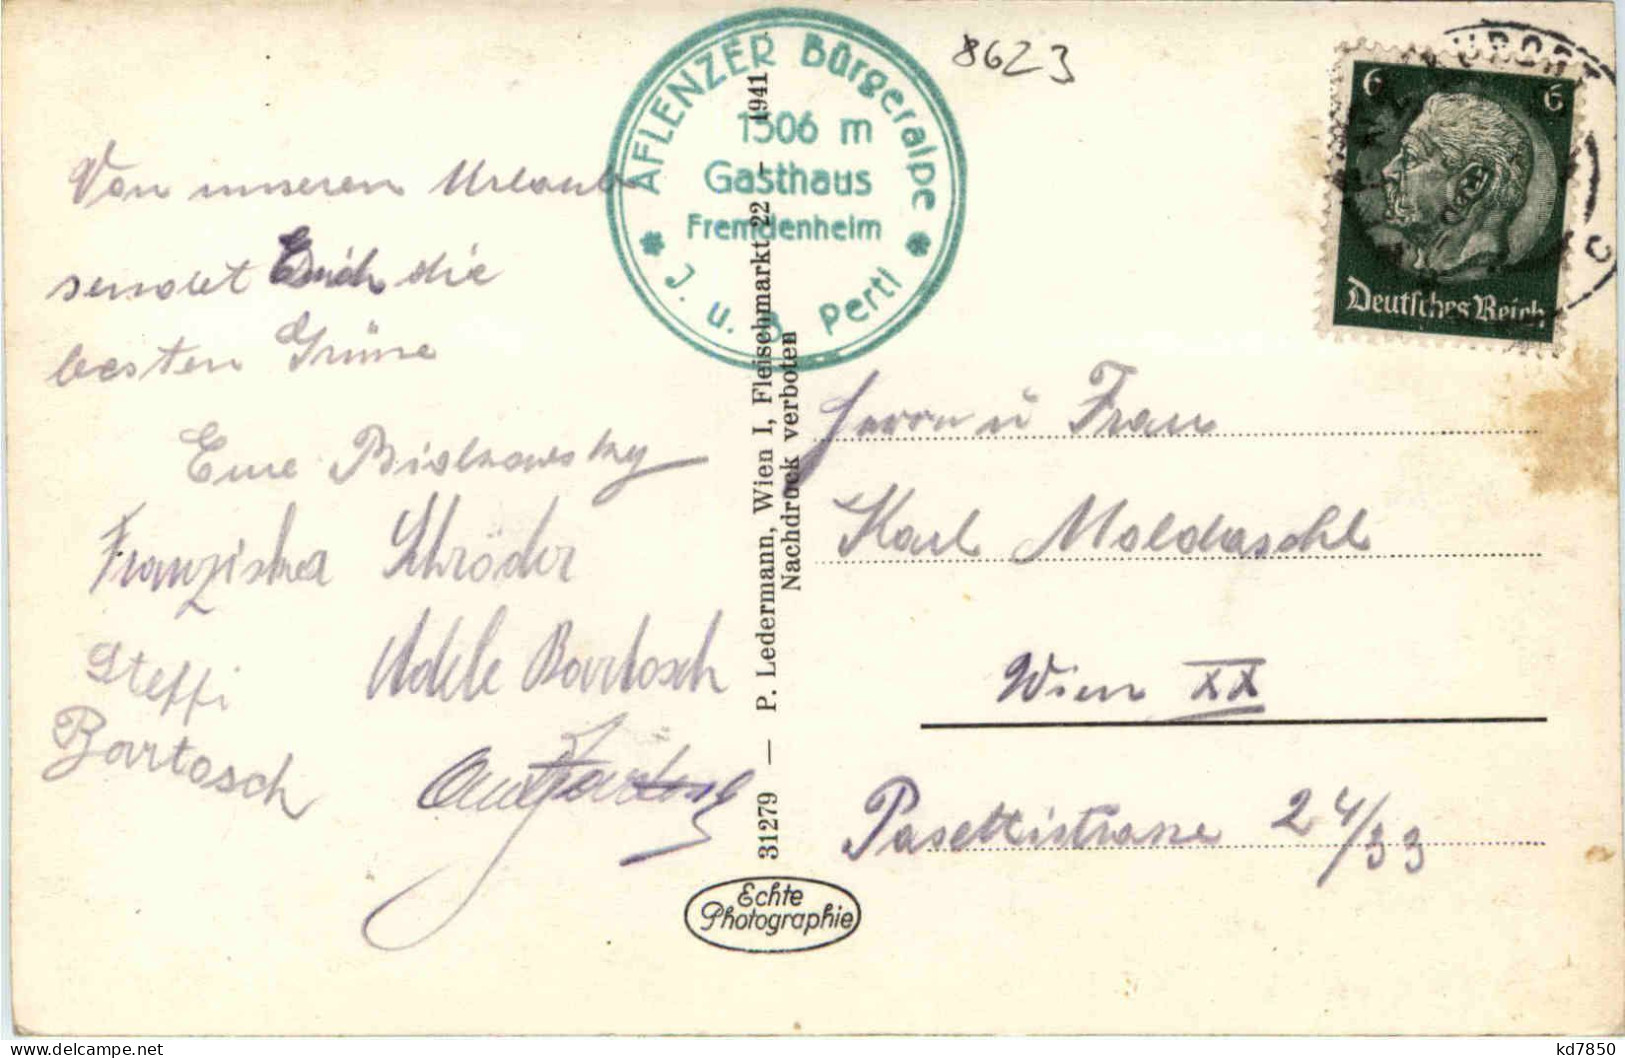 8623
AFLENZER Bürgeralpe
1506 m
Gasthaus
Fremdenheim
J. u. B. Pertl
KURORT
6 6
Deutsches Reich
Von unseren Urlaub
sendet Euich die
besten Grüne
Eure Bialkowsky
Franziska Schröder
Steffi Adele Bartosch
Bartosch
31279 — P. Ledermann, Wien I, Fleischmarkt 22 — 1941
Nachdruck verboten
Echte
Photographie
Herrn u Frau
Karl Moldaschl
Wien XX
Pasettistrasse 24/33
kd7850